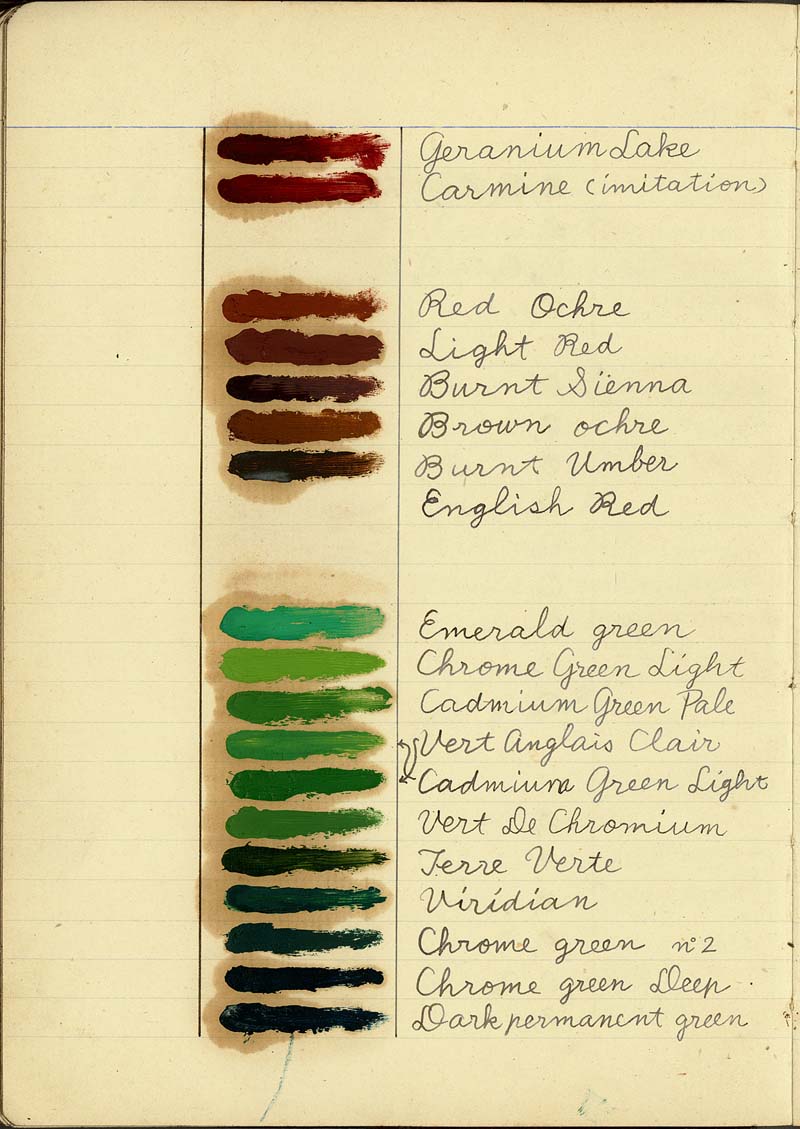 Geranium Lake
Carmine (imitation)
Red Ochre
Light Red
Burnt Sienna
Brown ochre
Burnt Umber
English Red
Emerald green
Chrome Green Light
Cadmium Green Pale
Vert Anglais Clair
Cadmium Green Light
Vert De Chromium
Terre Verte
Viridian
Chrome green n° 2
Chrome green Deep
Dark permanent green